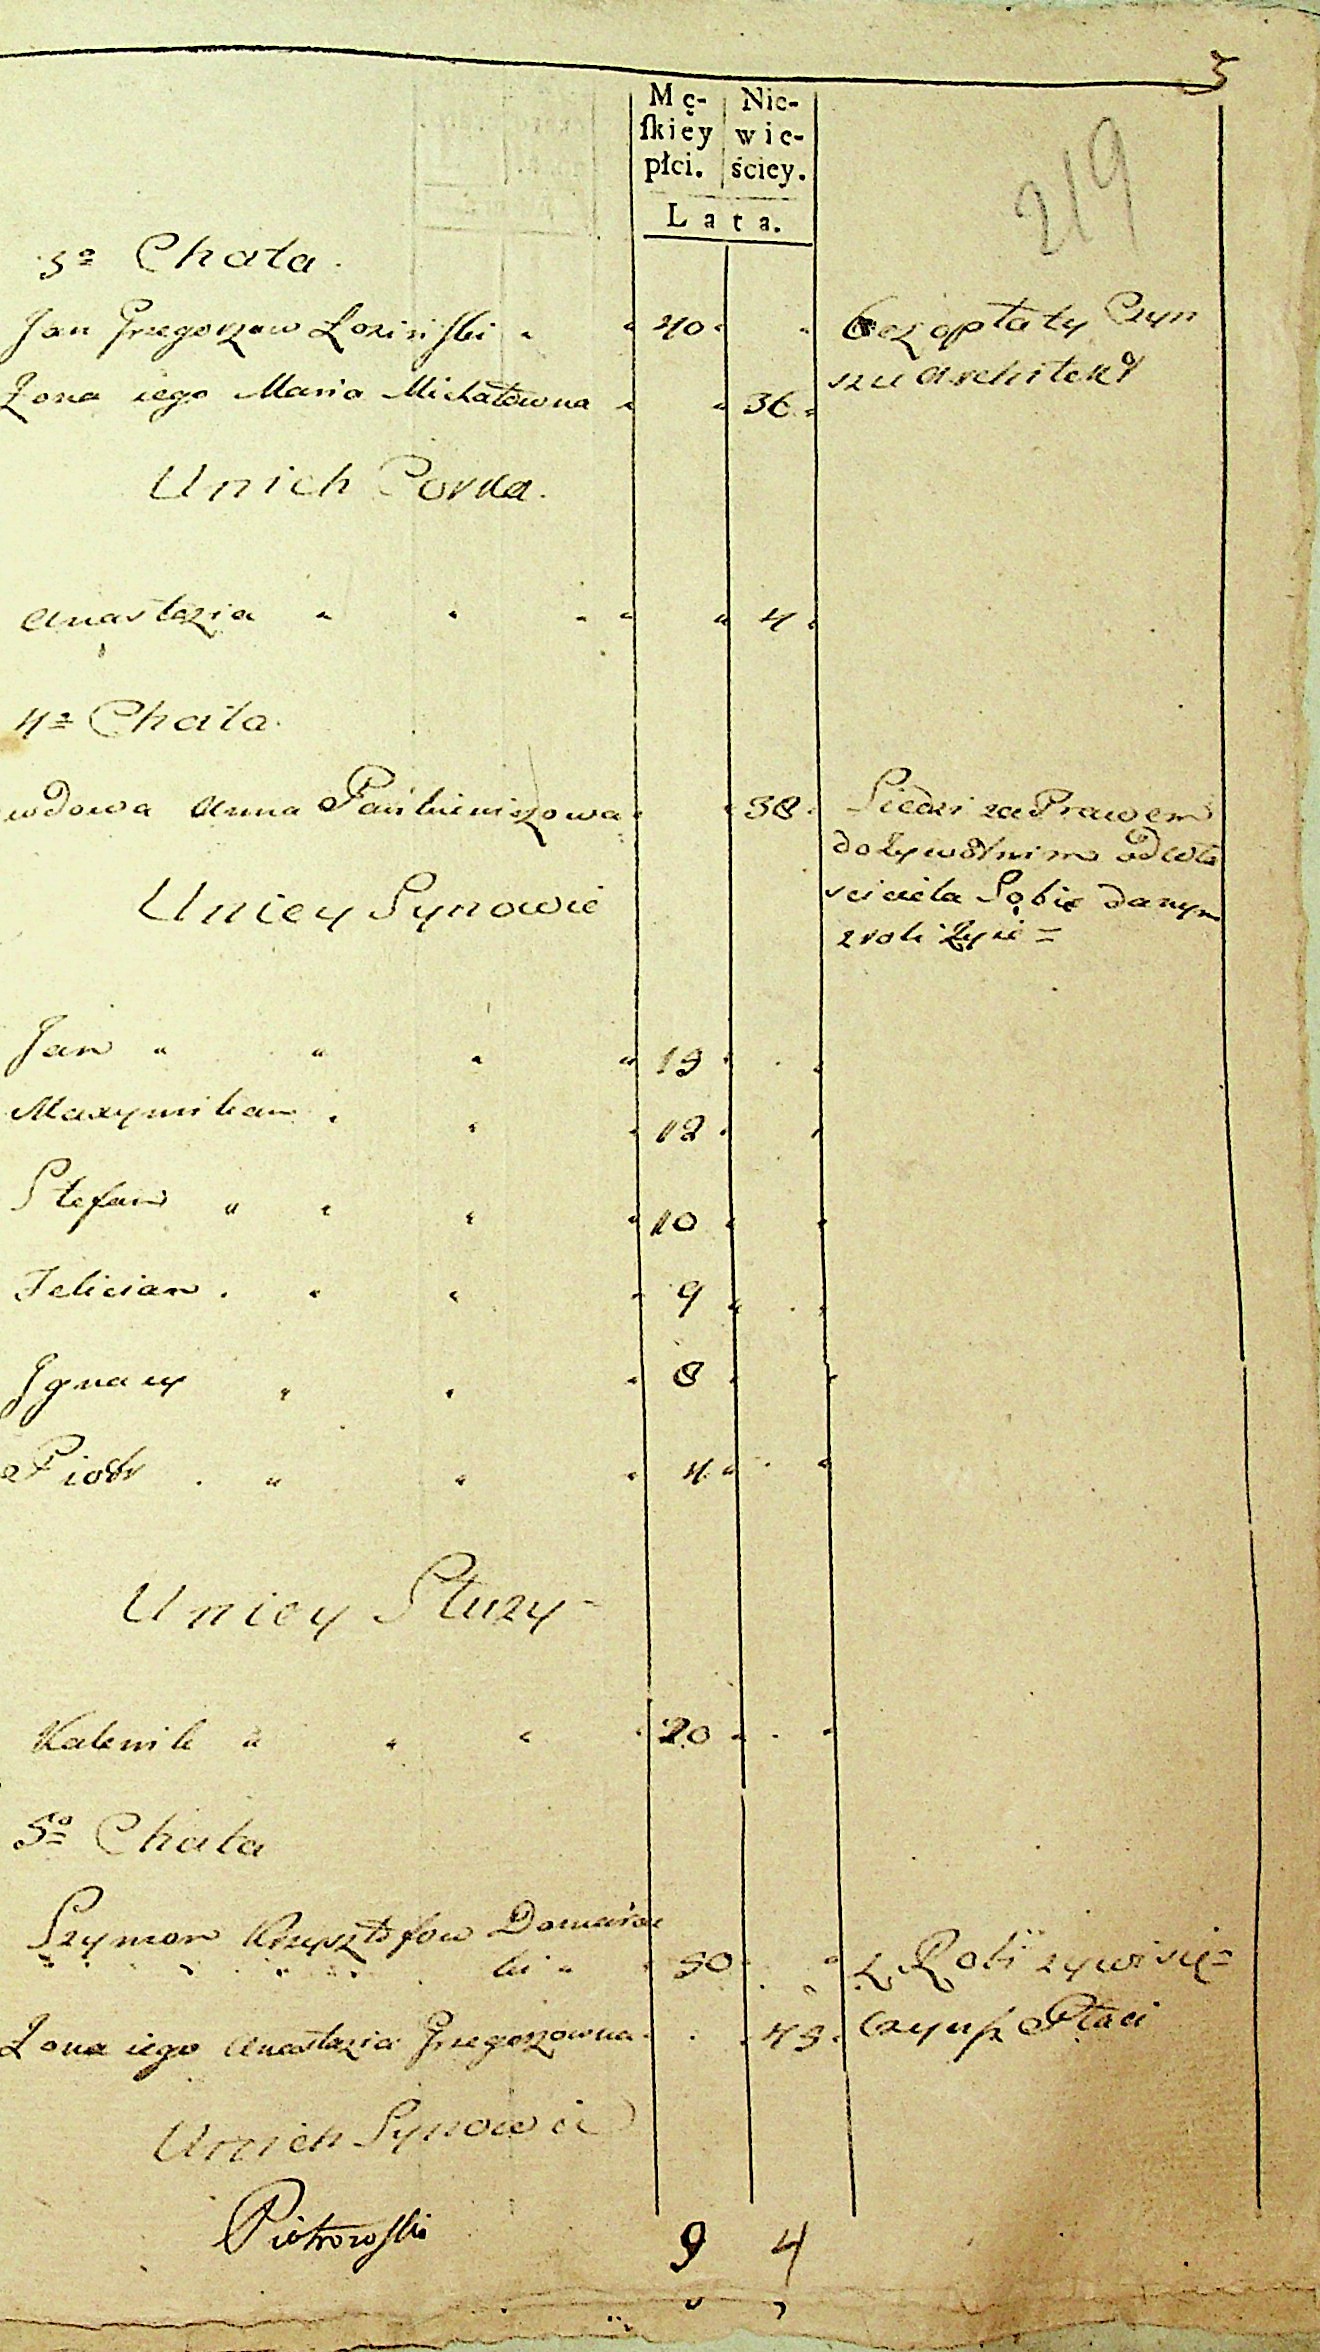 5
219
Mę- Nie-
ſkiey wie-
płci. ściey.
Lata.
3º Chata
Jan Grzegorzow Łoziński 40 bez opłaty Czyn
szu Architekt
Żona iego Maria Michałowna 36
U nich Corka.
Anastazia 4
4º Chata
wdowa Anna Pańkiewiczowa 38 Siedzi za Prawem
dożywotnim od wła
sciciela Sobie danym
z roli żyie =
U niey Synowie
Jan 19
Maxymilian 12
Stefan 10
Felician 9
Jgnacy 8
Piotr 4
U niey Służy
20
5º Chata
Szymon Krzysztofow Domańs
ki 50 Z Roli żywi się =
Żona iego Anastazia Grzegorzowna 49 Czynsz Płaci
U nich Synowie
Piotrowski
9 4